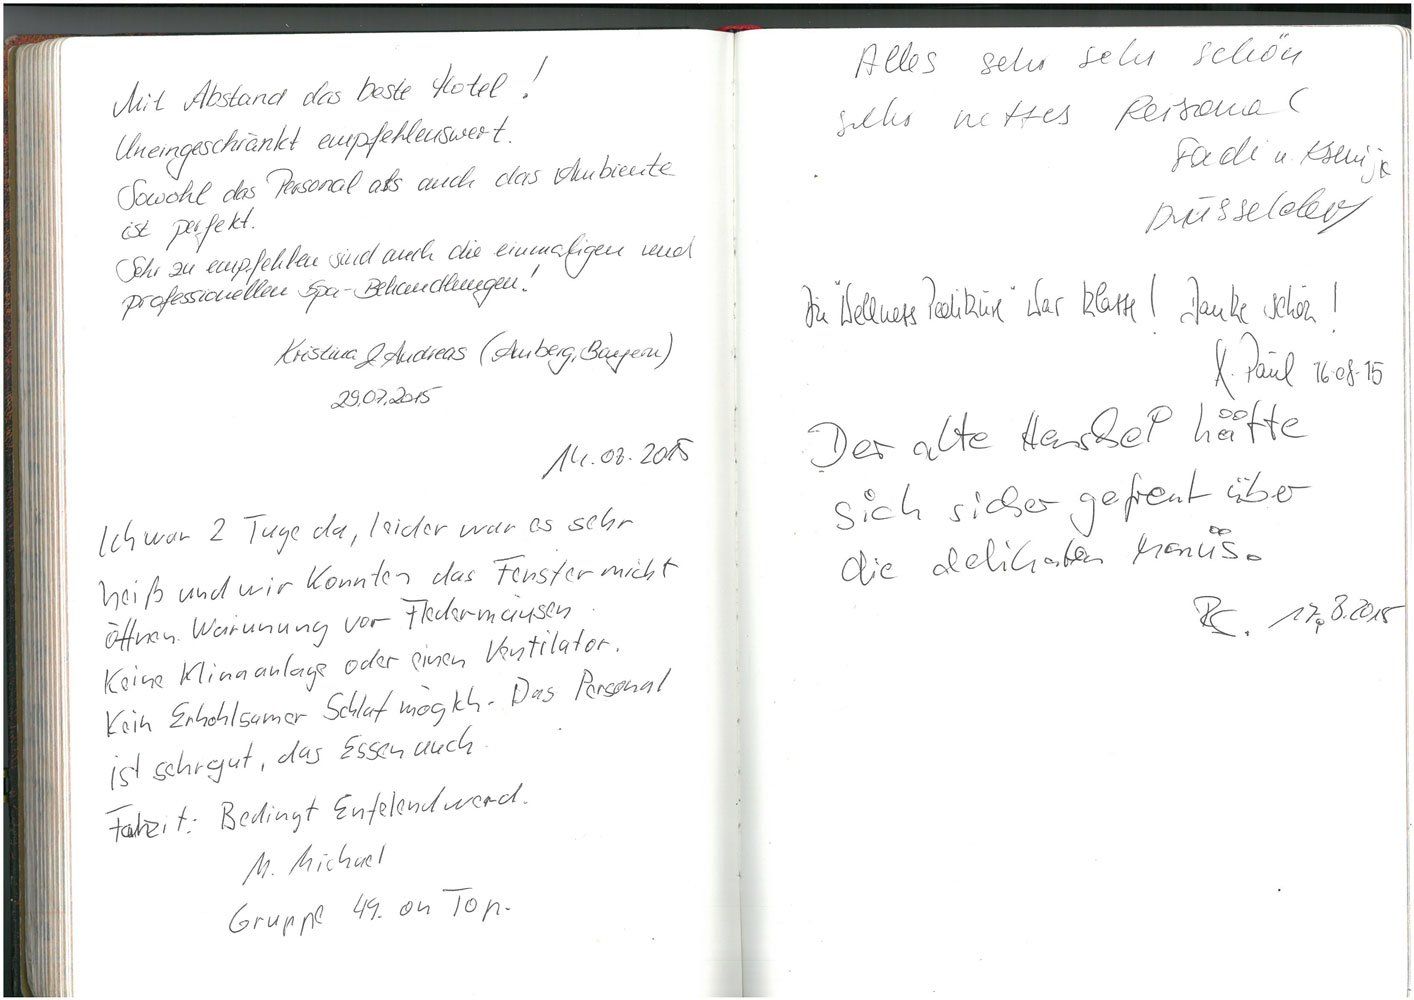 Mit Abstand das beste Hotel!
Uneingeschränkt empfehlenswert.
Sowohl das Personal als auch das Ambiente
ist perfekt.
Sehr zu empfehlen sind auch die einmaligen und
professionellen Spa-Behandlungen!
Kristina & Andreas (Amberg, Bayern)
29.07.2015
14.08.2015
Ich war 2 Tage da, leider war es sehr
heiß und wir konnten das Fenster nicht
öffnen. Warunung vor Fledermäusen.
Keine Klimaanlage oder einen Ventilator.
Kein Erhohlsamer Schlaf möglich. Das Personal
ist sehr gut, das Essen auch.
Fahzit: Bedingt Enfelendwerd.
M. Michael
Gruppe 49. on Top.
Alles sehr sehr schön
sehr nettes Personal
Fadi u. Ksenija
Düsseldorf
Die "Wellness Pediküre" war klasse! Danke schön!
Paul 16.08.15
Der alte Henschel hätte
sich sicher gefreut über
die delikaten Menüs.
17.8.2015